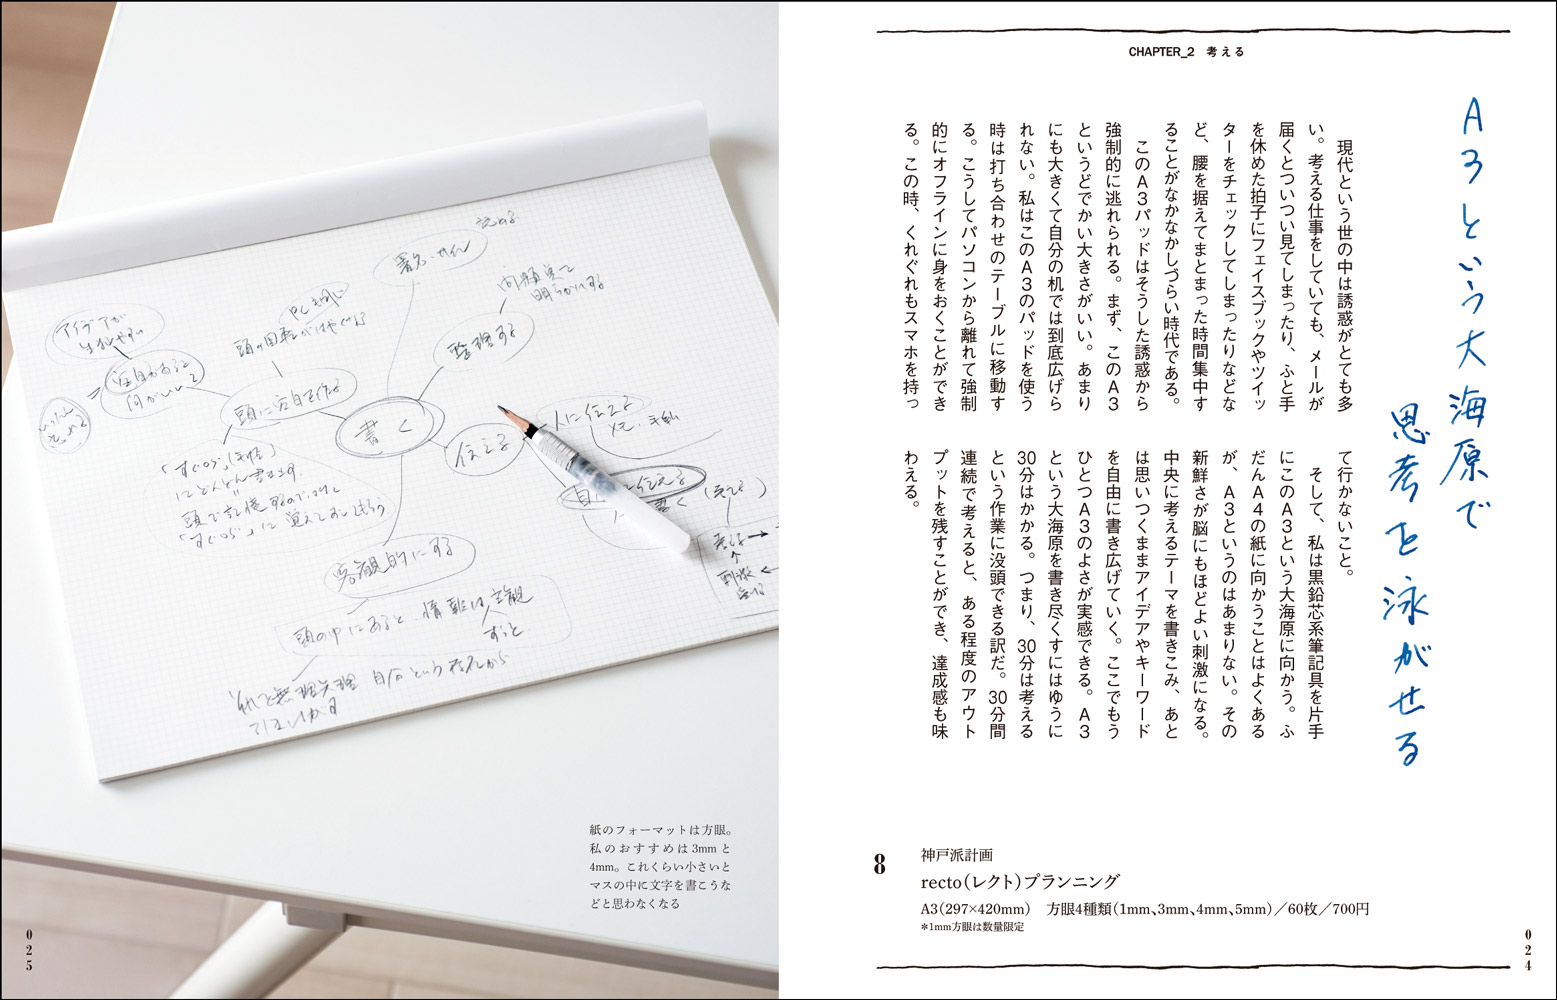 CHAPTER_2 考える
A3という大海原で
思考を泳がせる
現代という世の中は誘惑がとても多
い。考える仕事をしていても、メールが
届くとついつい見てしまったり、ふと手
を休めた拍子にフェイスブックやツイッ
ターをチェックしてしまったりなどな
ど、腰を据えてまとまった時間集中す
ることがなかなかしづらい時代である。
このA3パッドはそうした誘惑から
強制的に逃れられる。まず、このA3
というどでかい大きさがいい。あまり
にも大きくて自分の机では到底広げら
れない。私はこのA3のパッドを使う
時は打ち合わせのテーブルに移動す
る。こうしてパソコンから離れて強制
的にオフラインに身をおくことができ
る。この時、くれぐれもスマホを持っ
て行かないこと。
そして、私は黒鉛芯系筆記具を片手
にこのA3という大海原に向かう。ふ
だんA4の紙に向かうことはよくある
が、A3というのはあまりない。その
新鮮さが脳にもほどよい刺激になる。
中央に考えるテーマを書きこみ、あと
は思いつくままアイデアやキーワード
を自由に書き広げていく。ここでもう
ひとつA3のよさが実感できる。A3
という大海原を書き尽くすにはゆうに
30分はかかる。つまり、30分は考える
という作業に没頭できる訳だ。30分間
連続で考えると、ある程度のアウト
プットを残すことができ、達成感も味
わえる。
8
神戸派計画
recto（レクト）プランニング
A3（297×420mm） 方眼4種類（1mm、3mm、4mm、5mm）／60枚／700円
＊1mm方眼は数量限定
024
書く
伝える
人に伝える
メモ・手紙
整理する
署名・サイン
頭に空白を作る
アイデアが
客観的にする
頭の中にあると、情報は主観
ずっと
紙のフォーマットは方眼。
私のおすすめは3mmと
4mm。これくらい小さいと
マスの中に文字を書こうな
どと思わなくなる
025